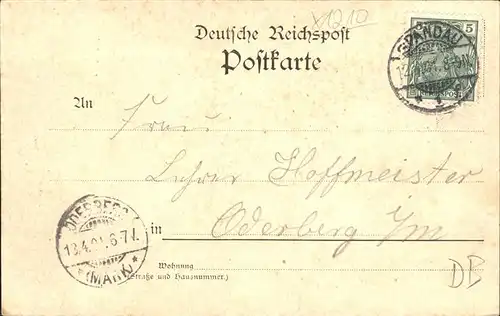 x1210
Deutsche Reichspost
Postkarte
5
SPANDAU
REICHSPOST
An Frau
Lehrer Hoffmeister
in Oderberg i/M
ODERBERG
13.4.01.6-7V.
*(MARK)*
Wohnung
(Straße und Hausnummer.)
DB